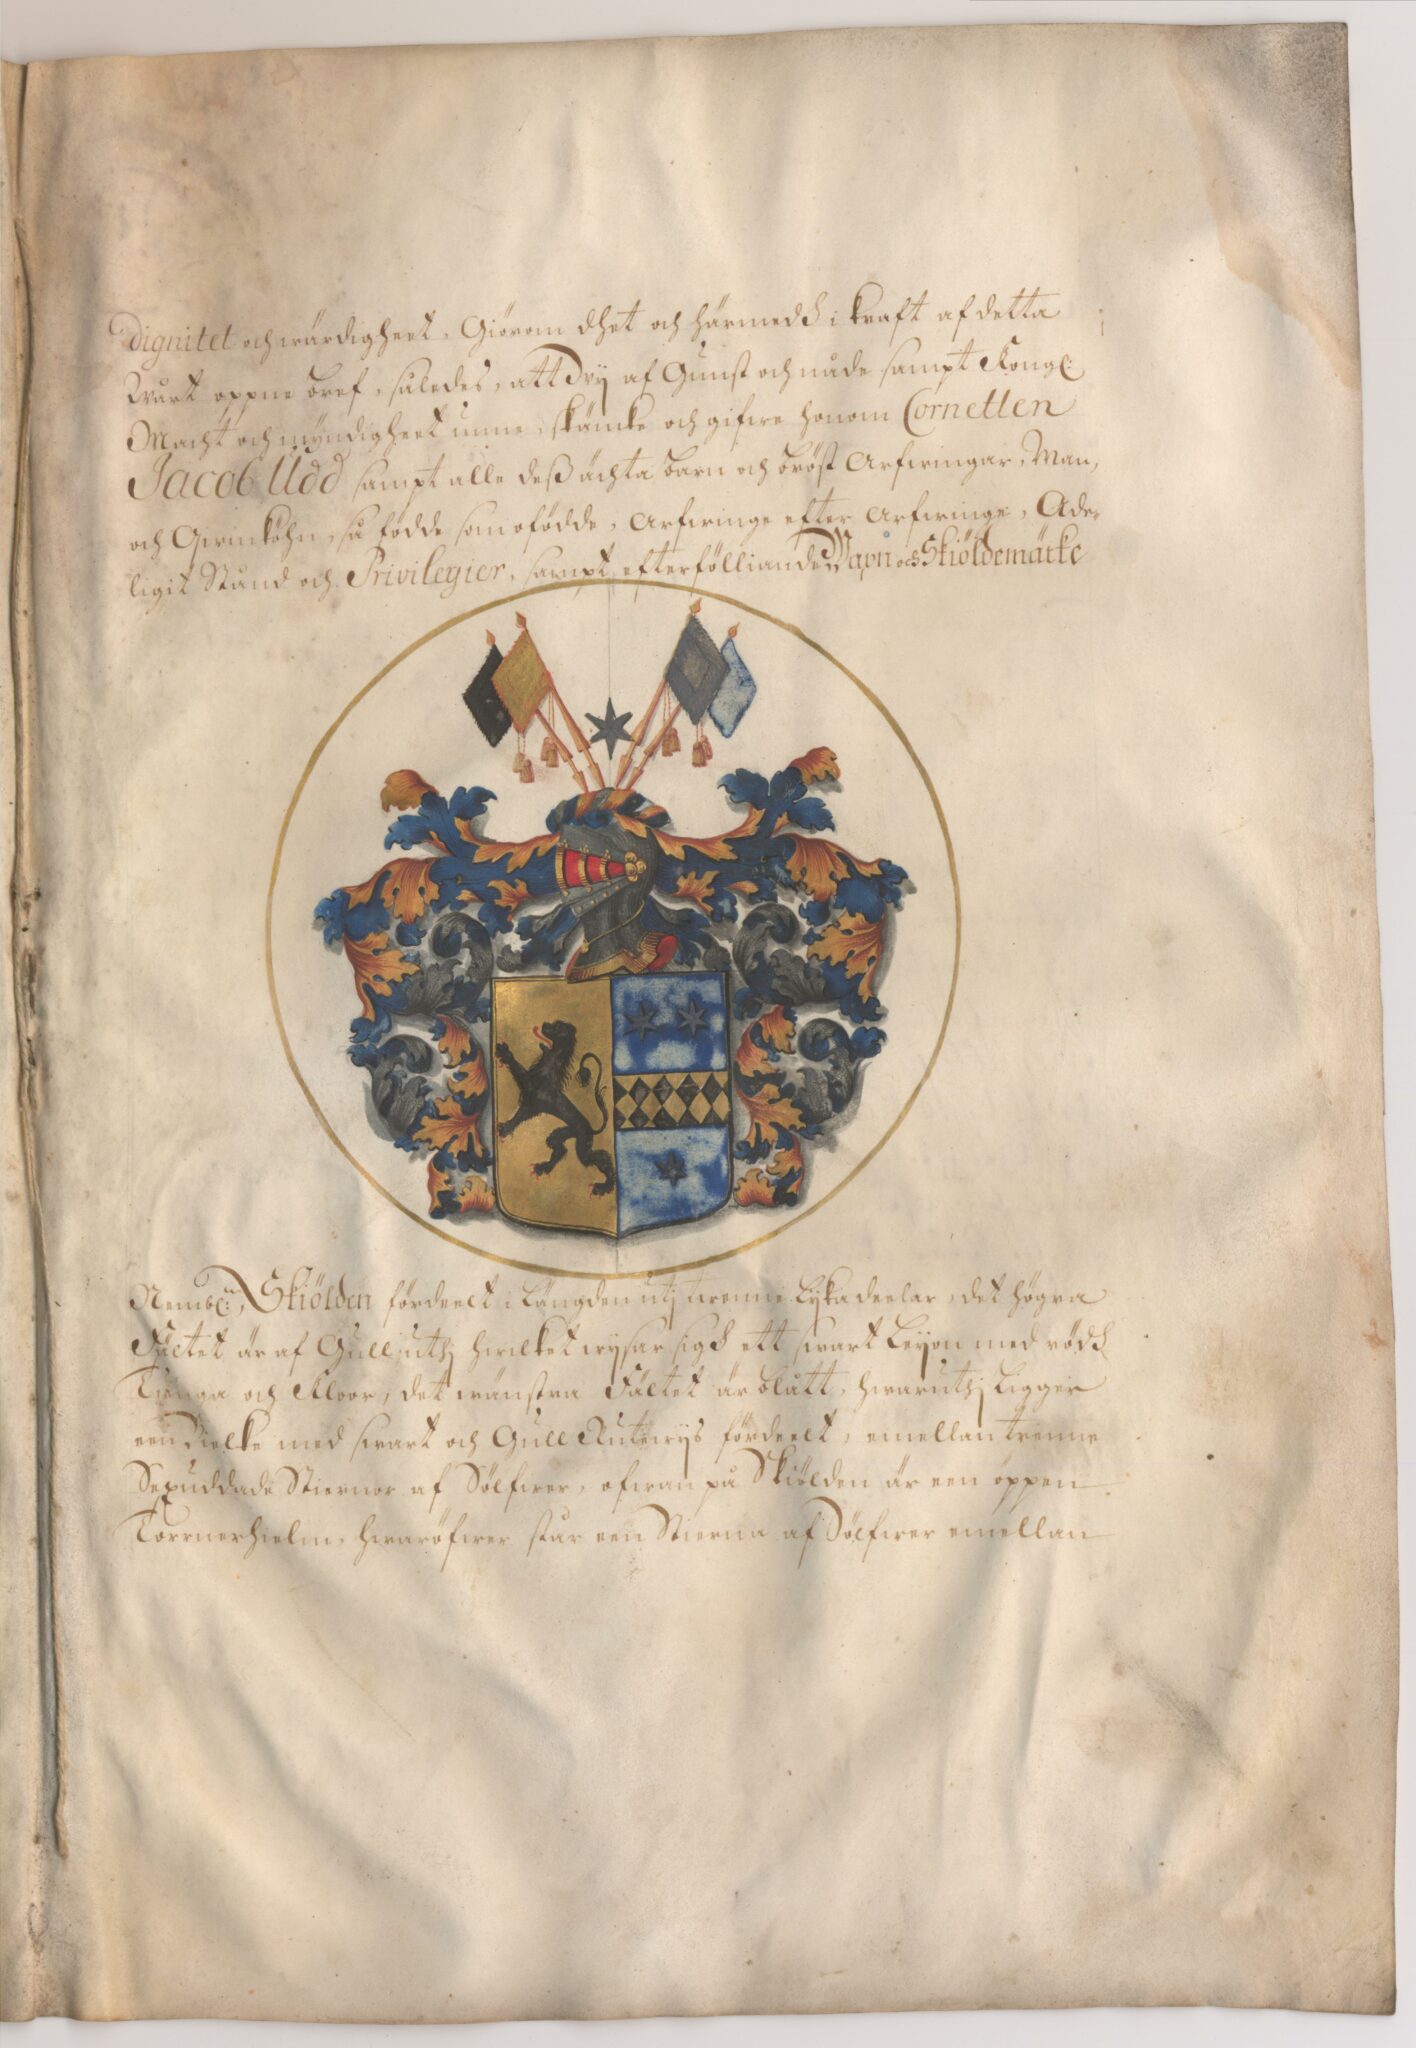 Dignitet och wärdigheet. Giörom dhet och härmedh i kraft af detta
Wårt öppne bref, således, att Wij af Gunst och nåde sampt Kongl:
Macht och myndigheet unne, skänke och gifwe honom Cornetten
Jacob Udd sampt alle deß ächta barn och bröst Arfwingar, Man,
och Qwinköhn, så födde som ofödde, Arfwinge efter Arfwinge, Ade-
ligit Stånd och Privilegier, sampt efterfölliande Wapn och Skiöldemärke
Nembl:n, Skiölden fördeelt i Längden utj twenne Lyka deelar, det högra
Fältet är af Gull, uthj hwilket wysar sigh ett swart Leyon med rödh
Tunga och Kloor, det wänstra Fältet är blått, hwaruthj Ligger
een Bielke med swart och Gull Rutewys fördeelt, emellan trenne
Sexuddade Stiernor af Sölfwer, ofwan på Skiölden är een öppen
Torrnerhielm, hwaröfwer står een Stierna af Sölfwer emellan